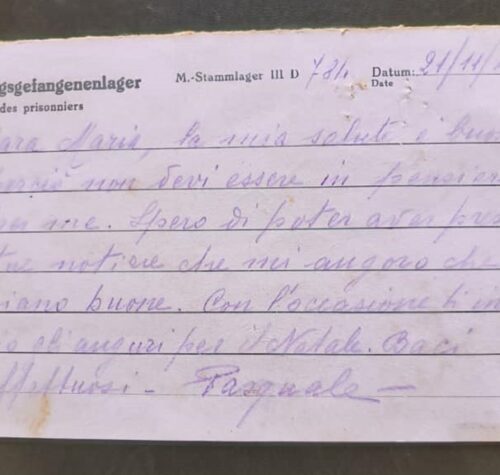 gsgefangenenlager M.-Stammlager III D 784. Datum: 21/11/
des prisonniers Date
ara Maria, la mia salute è buo
perciò non devi essere in pensier
per me. Spero di poter aver pre
tue notizie che mi auguro che
iano buone. Con l'occasione ti in
o gli auguri per il Natale. Baci
ffettuosi - Pasquale -